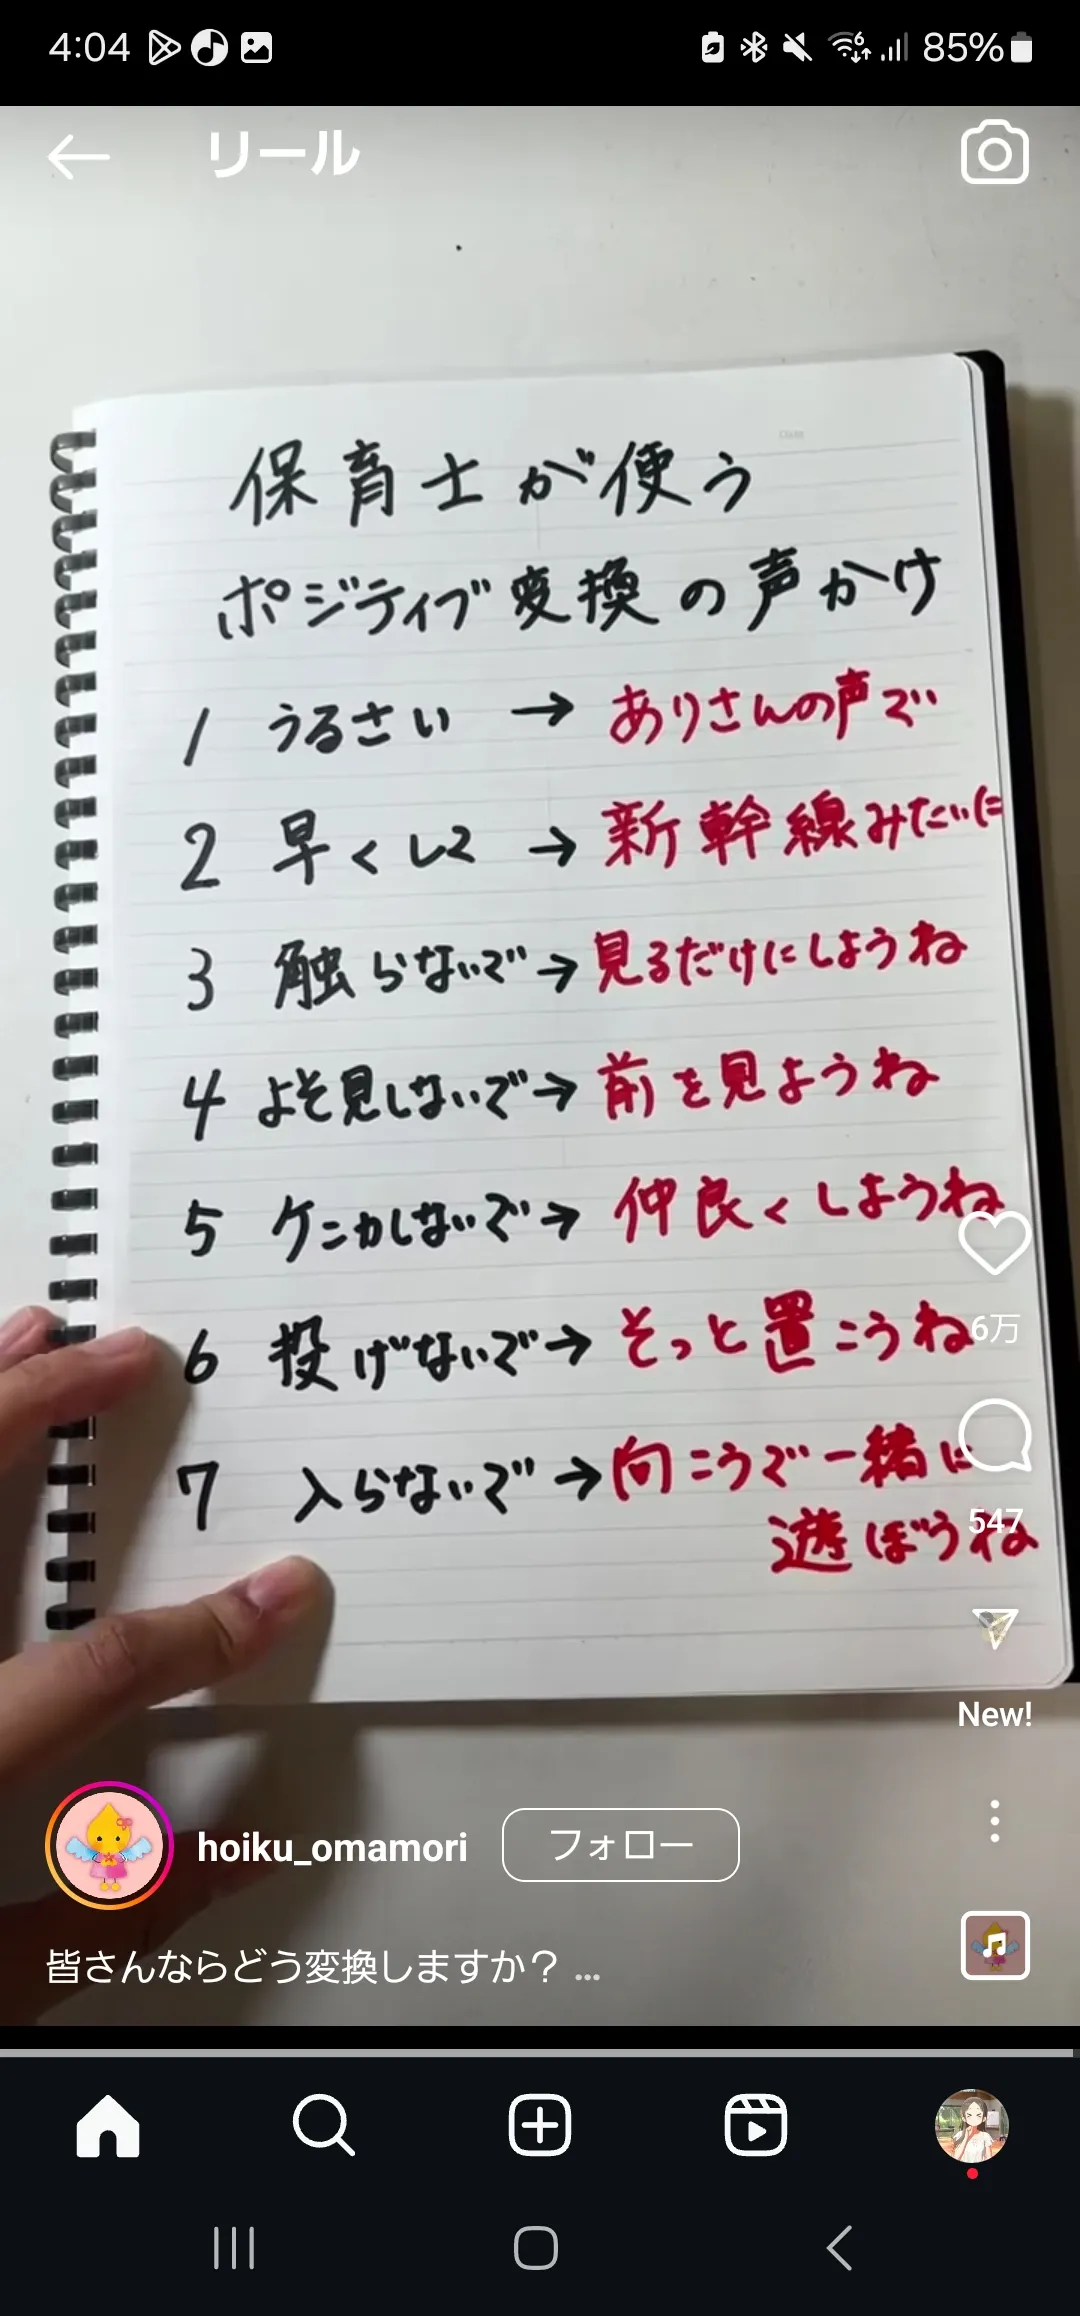 4:04
85%
リール
保育士が使う
ポジティブ変換の声かけ
1 うるさい → ありさんの声で
2 早くして → 新幹線みたいに
3 触らないで → 見るだけにしようね
4 よそ見しないで → 前を見ようね
5 ケンカしないで → 仲良くしようね
6 投げないで → そっと置こうね
7 入らないで → 向こうで一緒に
遊ぼうね
6万
547
New!
hoiku_omamori フォロー
皆さんならどう変換しますか? ...